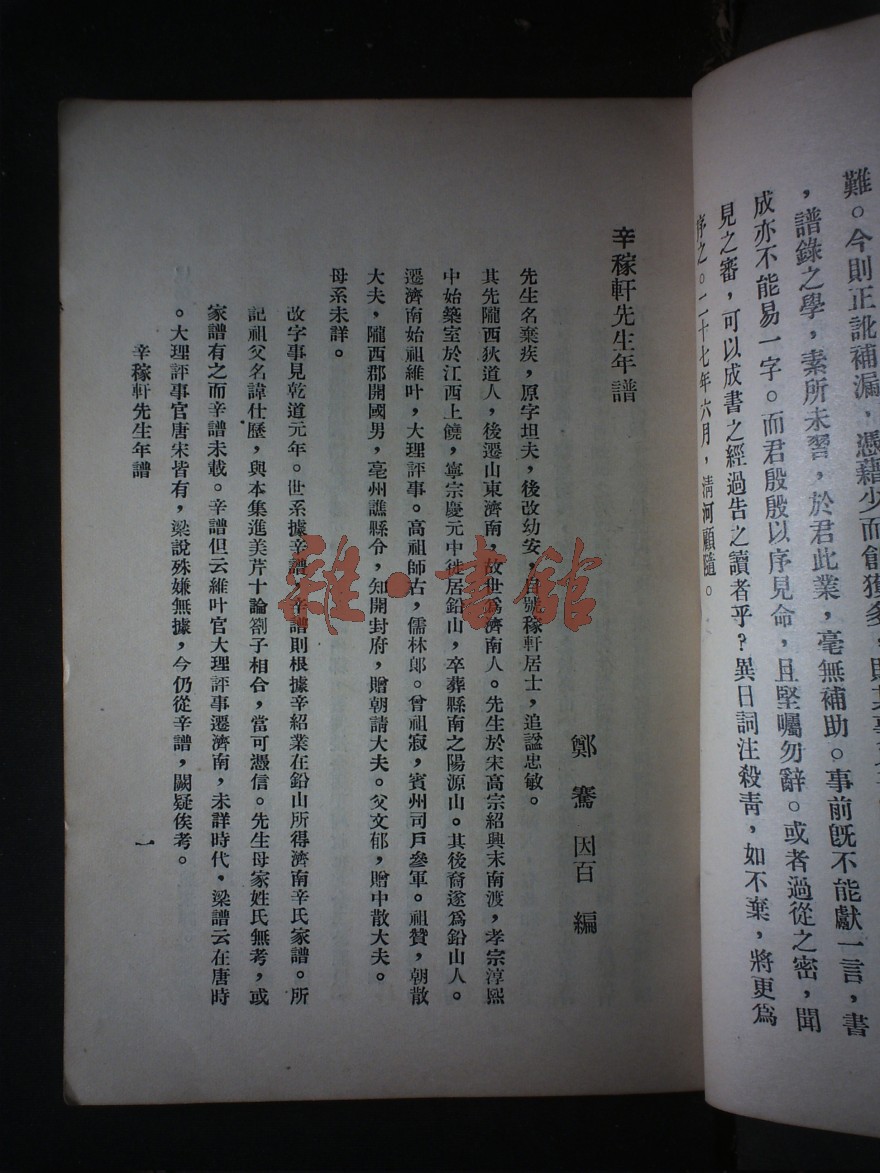 難。今則正訛補漏,憑藉少而創獲多,
,譜錄之學,素所未習,於君此業,毫無補助。事前旣不能獻一言,書
成亦不能易一字。而君殷殷以序見命,且堅囑勿辭。或者過從之密,聞
見之審,可以成書之經過告之讀者乎?異日詞注殺靑,如不棄,將更爲
序之。二十七年六月,淸河顧隨。
辛稼軒先生年譜
鄭騫因百編
先生名棄疾,原字坦夫,後改幼安,自號稼軒居士,追謚忠敏。
其先隴西狄道人,後遷山東濟南,故世爲濟南人。先生於宋高宗紹興末南渡,孝宗淳熙
中始築室於江西上饒,寧宗慶元中徙居鉛山,卒葬縣南之陽源山。其後裔遂爲鉛山人。
遷濟南始祖維叶,大理評事。高祖師古,儒林郎。曾祖寂,賓州司戶參軍。祖贊,朝散
大夫,隴西郡開國男,亳州譙縣令,知開封府,贈朝請大夫。父文郁,贈中散大夫。
母系未詳。
改字事見乾道元年。世系據辛譜,辛譜則根據辛紹業在鉛山所得濟南辛氏家譜。所
記祖父名諱仕歷,與本集進美芹十論劄子相合,當可憑信。先生母家姓氏無考,或
家譜有之而辛譜未載。辛譜但云維叶官大理評事遷濟南,未詳時代,梁譜云在唐時
。大理評事官唐宋皆有,梁說殊嫌無據,今仍從辛譜,闕疑俟考。
辛稼軒先生年譜
一
雜·書館